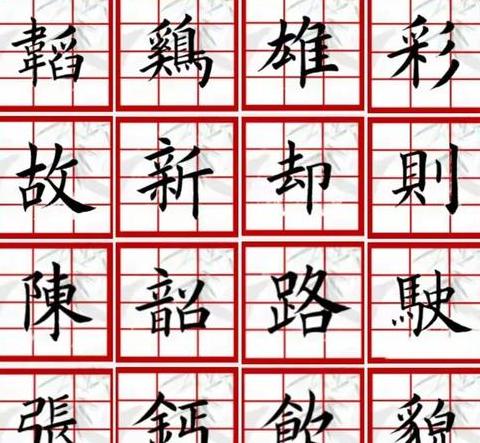 韜鷄雄彩
故新却則
陳韶路駛
張鈣飲貌